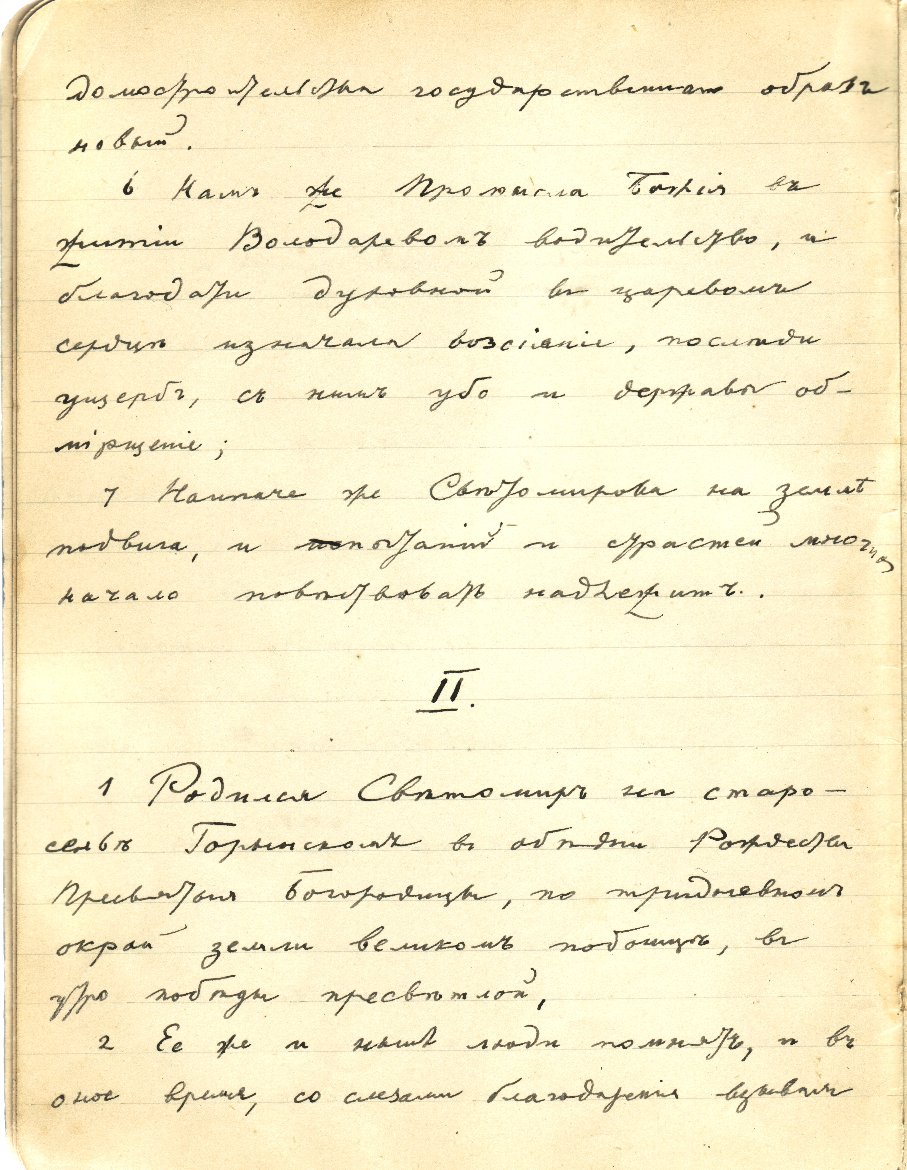 домостроительства государственнаго образъ
новый.
6 Намъ же Промысла Божія въ
житіи Володаревомъ водительство, и
благодати духовной въ царевомъ
сердцѣ изначала возсіяніе, послѣди
ущербъ, съ нимъ убо и державы об-
мірщеніе;
7 Наипаче же Свѣтомирова на землѣ
подвига, и испытаній и страстей многихъ
начало повѣствовать надлежитъ.
II.
1 Родился Свѣтомиръ на старо-
сельѣ Горынскомъ въ обѣдни Рождества
Пресвятыя Богородицы, по тридневномъ
окрай земли великомъ побоищѣ, въ
утро побѣды пресвѣтлой,
2 Ее же и нынѣ люди помнятъ, и въ
оное время, со слезами благодаренія взывая